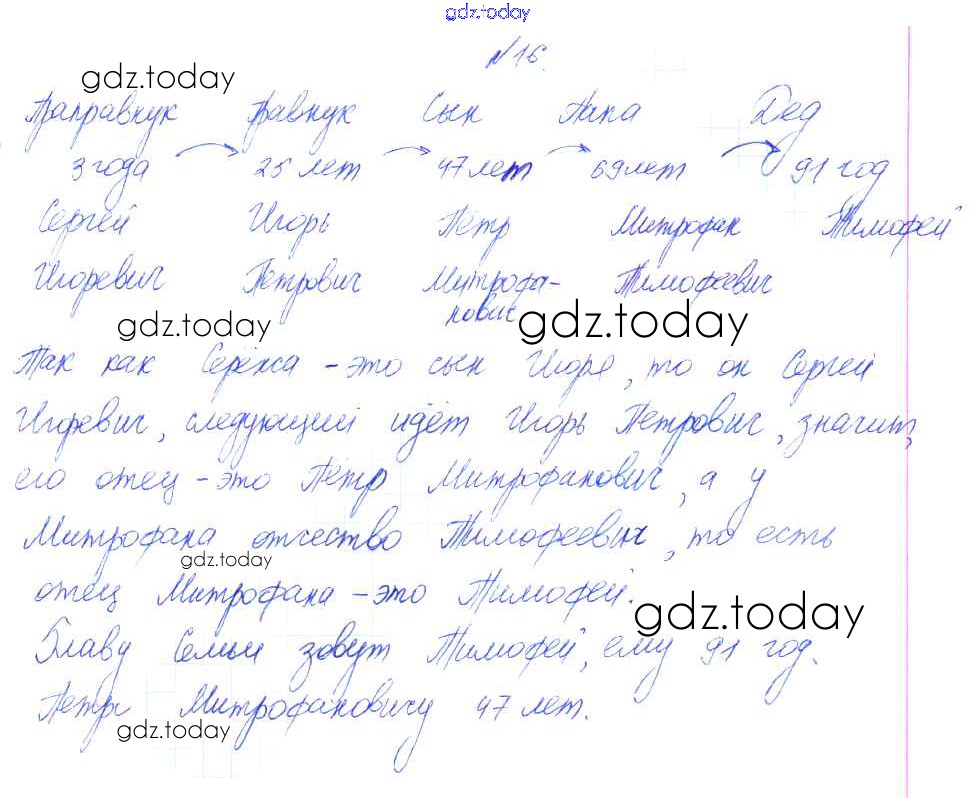 gdz.today
№16.
gdz.today
Праправнук Правнук Сын Папа Дед
3 года 25 лет 47 лет 69 лет 91 год
Сергей Игорь Пётр Митрофан Тимофей
Игоревич Петрович Митрофа- Тимофеевич
нович
gdz.today gdz.today
Так как Серёжа - это сын Игоря, то он Сергей
Игоревич, следующий идёт Игорь Петрович, значит,
его отец - это Пётр Митрофанович, а у
Митрофана отчество Тимофеевич, то есть
gdz.today
отец Митрофана - это Тимофей.
gdz.today
Главу семьи зовут Тимофей, ему 91 год.
Петру Митрофановичу 47 лет.
gdz.today